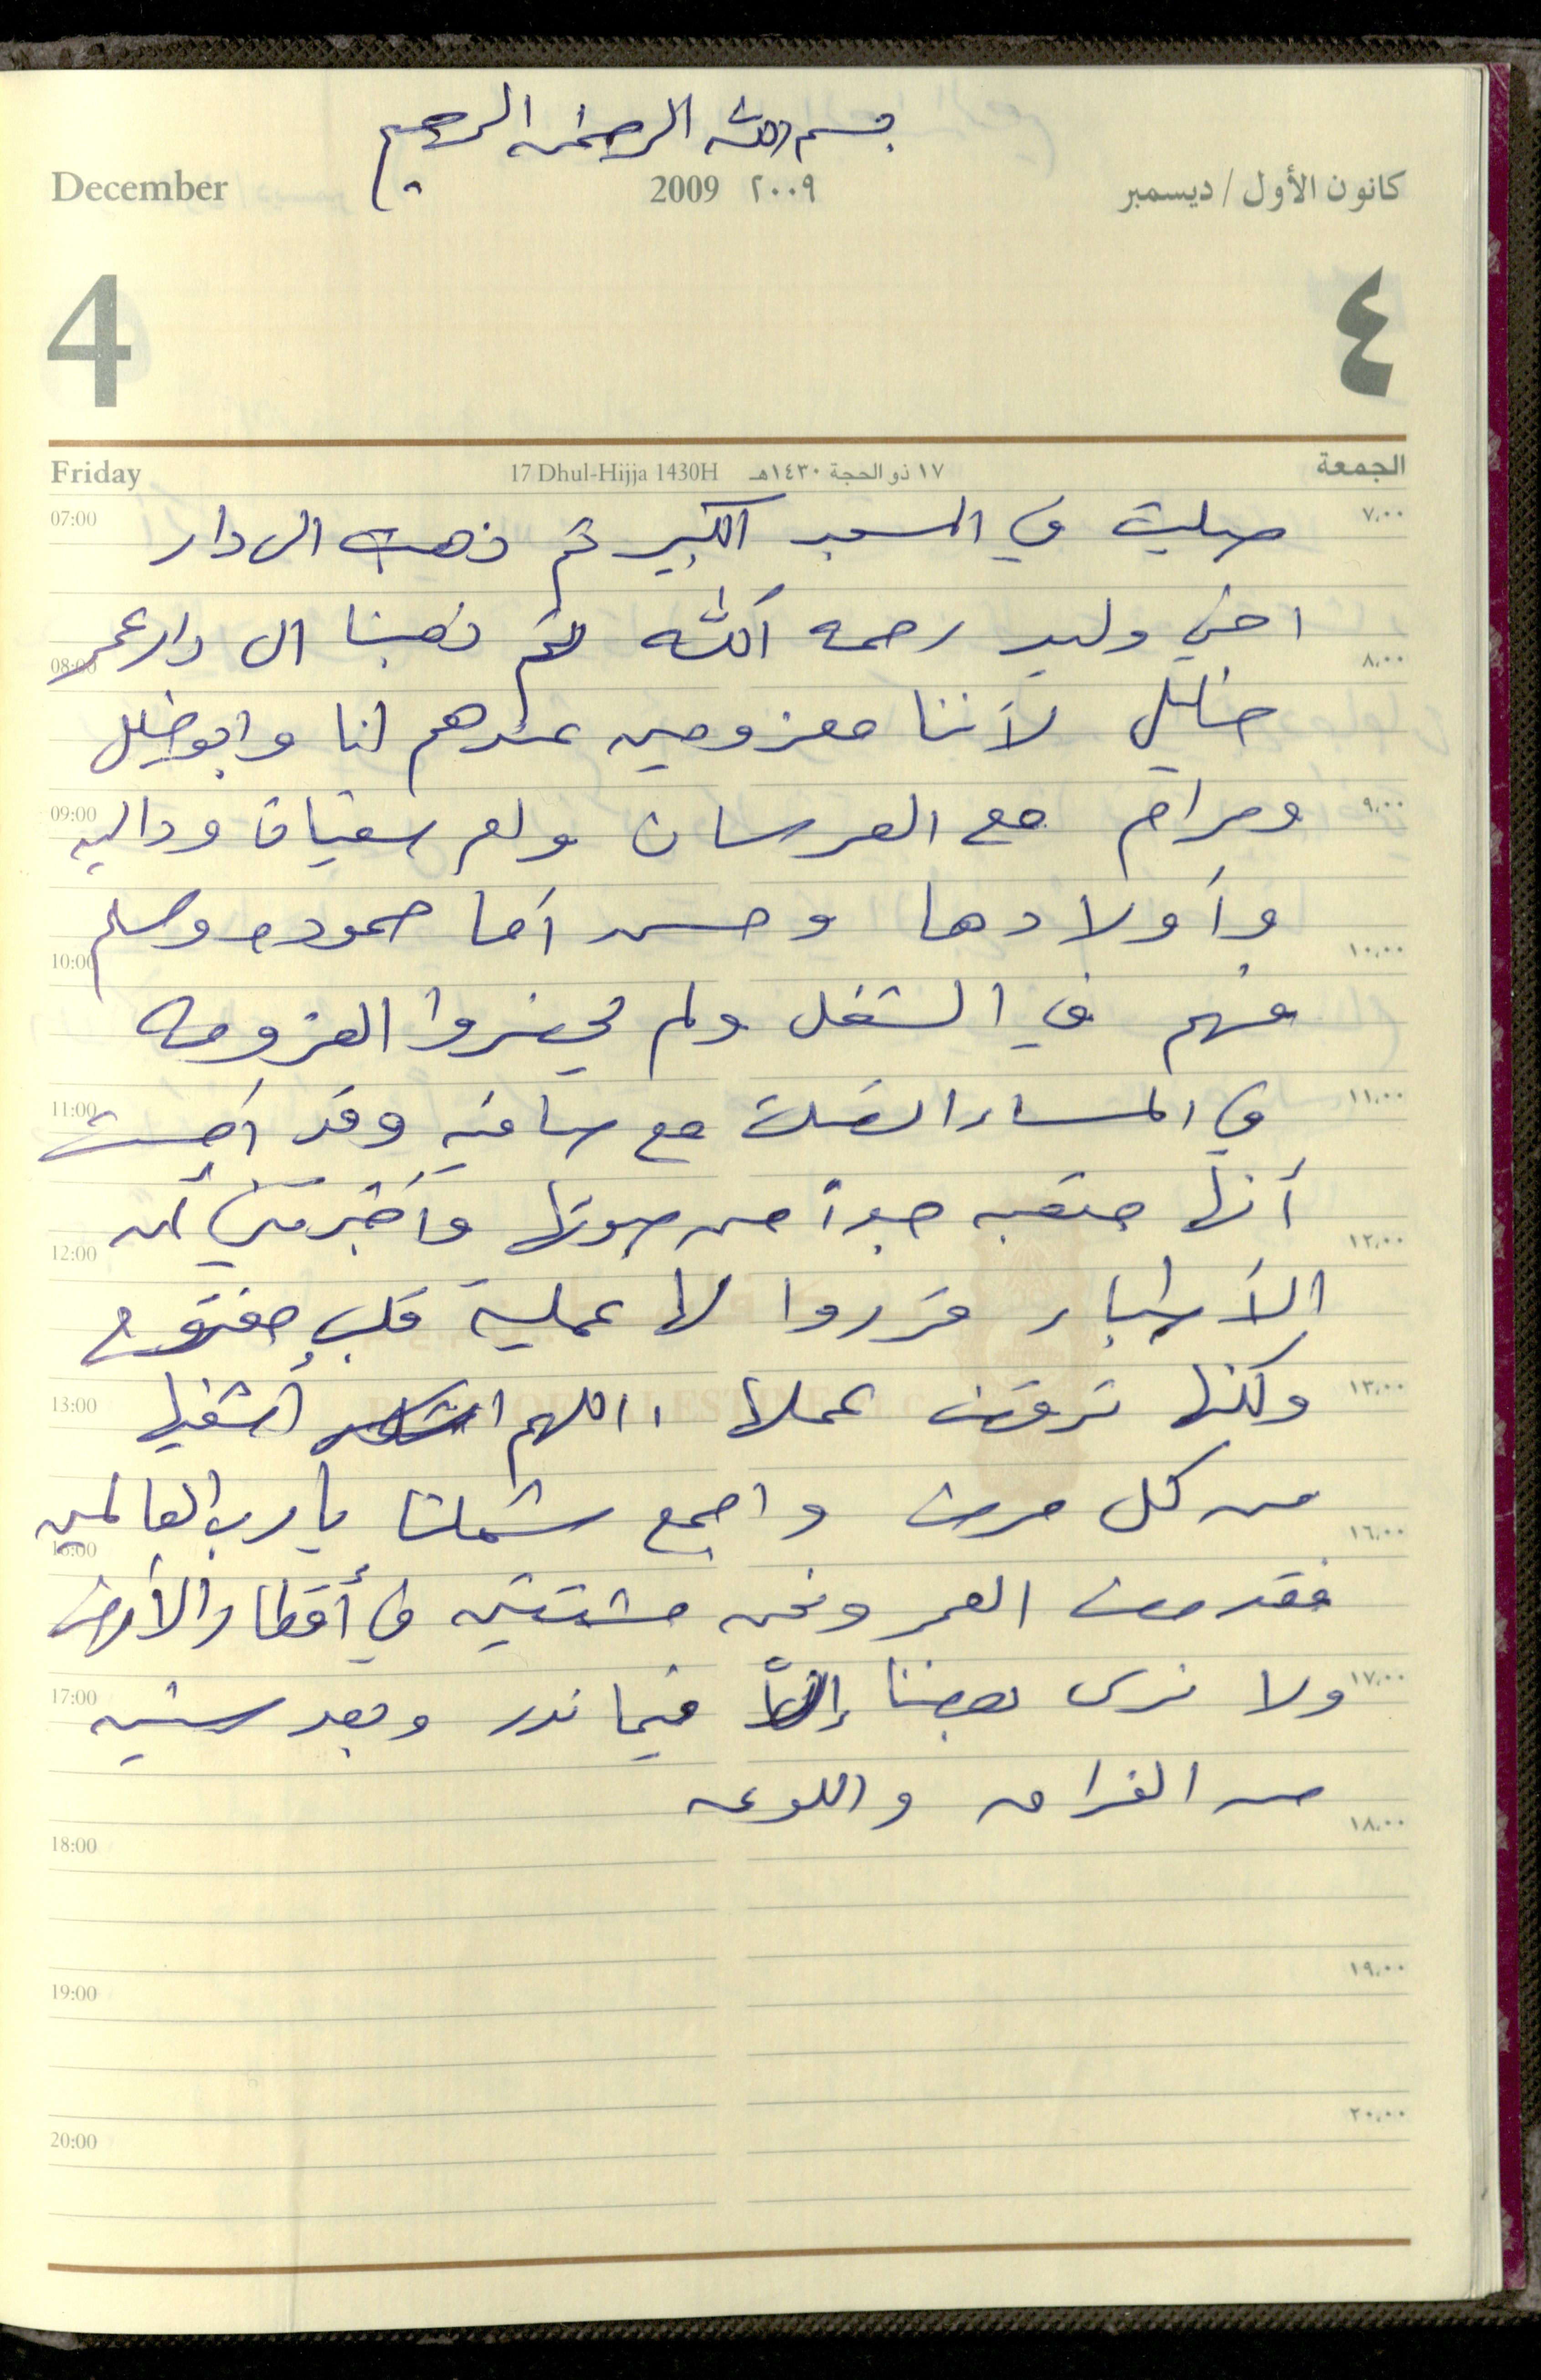 بسم الله الرحمن الرحيم
December 2009 ٢٠٠٩ كانون الأول / ديسمبر
4 ٤
Friday 17 Dhul-Hijja 1430H ١٧ ذو الحجة ١٤٣٠هـ الجمعة
07:00 ٧,٠٠
صليت في المسجد الكبير ثم ذهبت الى دار
اخي وليد رحمه الله ثم ذهبنا الى دار عمر
08:00 ٨,٠٠
خليل لأننا معزومين عندهم انا وابو خليل
09:00 ٩,٠٠
ومرام مع العرسان وام سفيان وداليه
وأولادها وحسن أما حموده وسلم
10:00 ١٠,٠٠
فهم في الشغل ولم يحضروا العزومه
11:00 ١١,٠٠
في المساء اتصلت مع ساميه وقد أحسست
أنها متعبه جداً من صوتها وأخبرتني أن
12:00 ١٢,٠٠
الأطباء قرروا لها عملية قلب مفتوح
13:00 ١٣,٠٠
ولكنها ترفض عملها ، اللهم أشفيها
من كل مرض واجمع شملنا يا رب العالمين
16:00 ١٦,٠٠
فقد مضى العمر ونحن مشتتين في أقطار الأرض
17:00 ١٧,٠٠
ولا نرى بعضنا إلاّ فيما ندر وبعد سنين
من الفراق واللوعه
18:00 ١٨,٠٠
19:00 ١٩,٠٠
20:00 ٢٠,٠٠